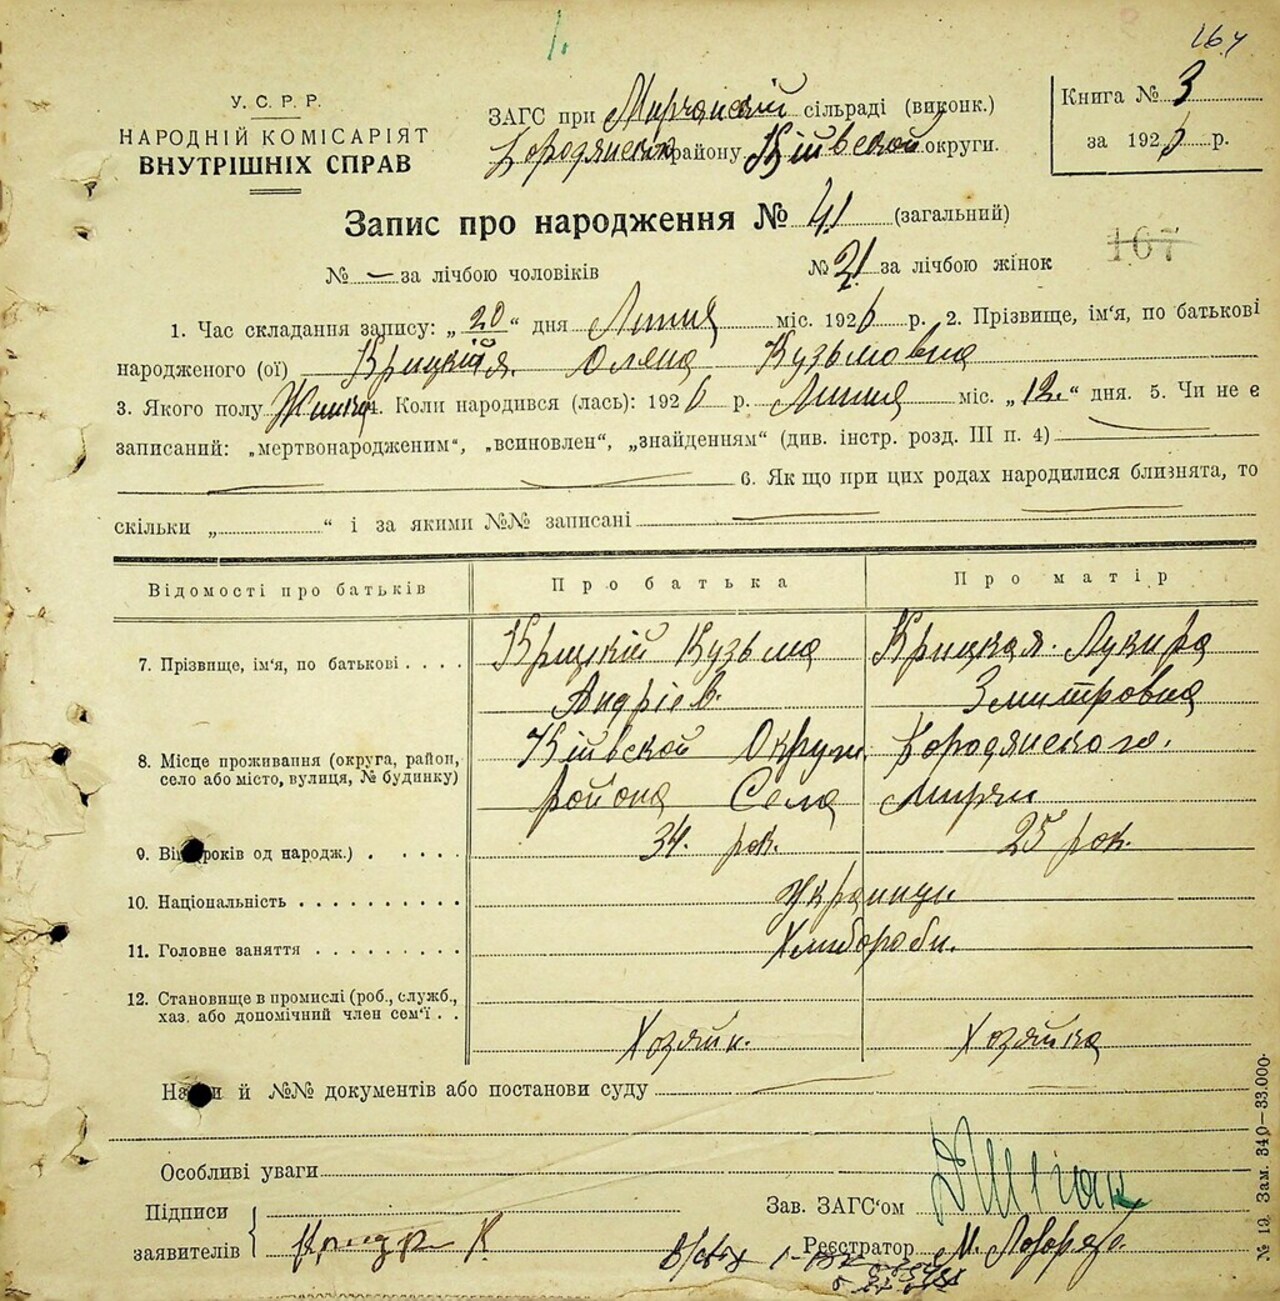 164
У. С. Р. Р.
НАРОДНІЙ КОМІСАРІЯТ
ВНУТРІШНІХ СПРАВ
ЗАГС при Мирчанскій сільраді (виконк.)
Бородянск району Кіівской округи.
Книга № 3
за 1926 р.
Запис про народження № 41 (загальний)
167
№ — за лічбою чоловіків № 21 за лічбою жінок
1. Час складання запису: „20“ дня Липня міс. 1926 р. 2. Прізвище, ім'я, по батькові
народженого (ої) Крицкія. Олена Кузьмовна
3. Якого полу Жинка 4. Коли народився (лась): 1926 р. Липня міс. „12.“ дня. 5. Чи не є
записаний: „мертвонародженим“, „всиновлен“, „знайденням“ (див. інстр. розд. III п. 4)
6. Як що при цих родах народилися близнята, то
скільки „ “ і за якими №№ записані
Відомості про батьків Про батька Про матір
7. Прізвище, ім'я, по батькові . . . . Крицкій Кузьма Крицкая. Лукира
Андріев. Змитровна
8. Місце проживання (округа, район, Кіівской Округи. Бородянского.
село або місто, вулиця, № будинку) района Села Мирчи
9. Ві років од народж.) . . . . . 34. рок. 25 рок.
10. Національність . . . . . . . . . . Украинци
11. Головне заняття . . . . . . . . . Хлибороби.
12. Становище в промислі (роб., служб.,
хаз. або допомічний член сем'ї . . Хозяйн. Хозяйка
На и й №№ документів або постанови суду
Особливі уваги
Підписи
заявителів
Зав. ЗАГС'ом
Реєстратор М.
№ 19. Зам. 340—33.000.